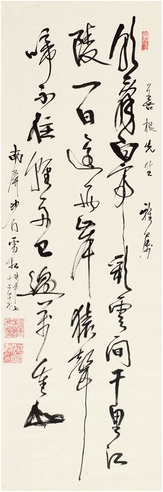 善根先生
雅屬
朝辭白帝彩雲間千里江
陵一日還兩岸猿聲
啼不住輕舟已過萬重山
南屏沙门雪松